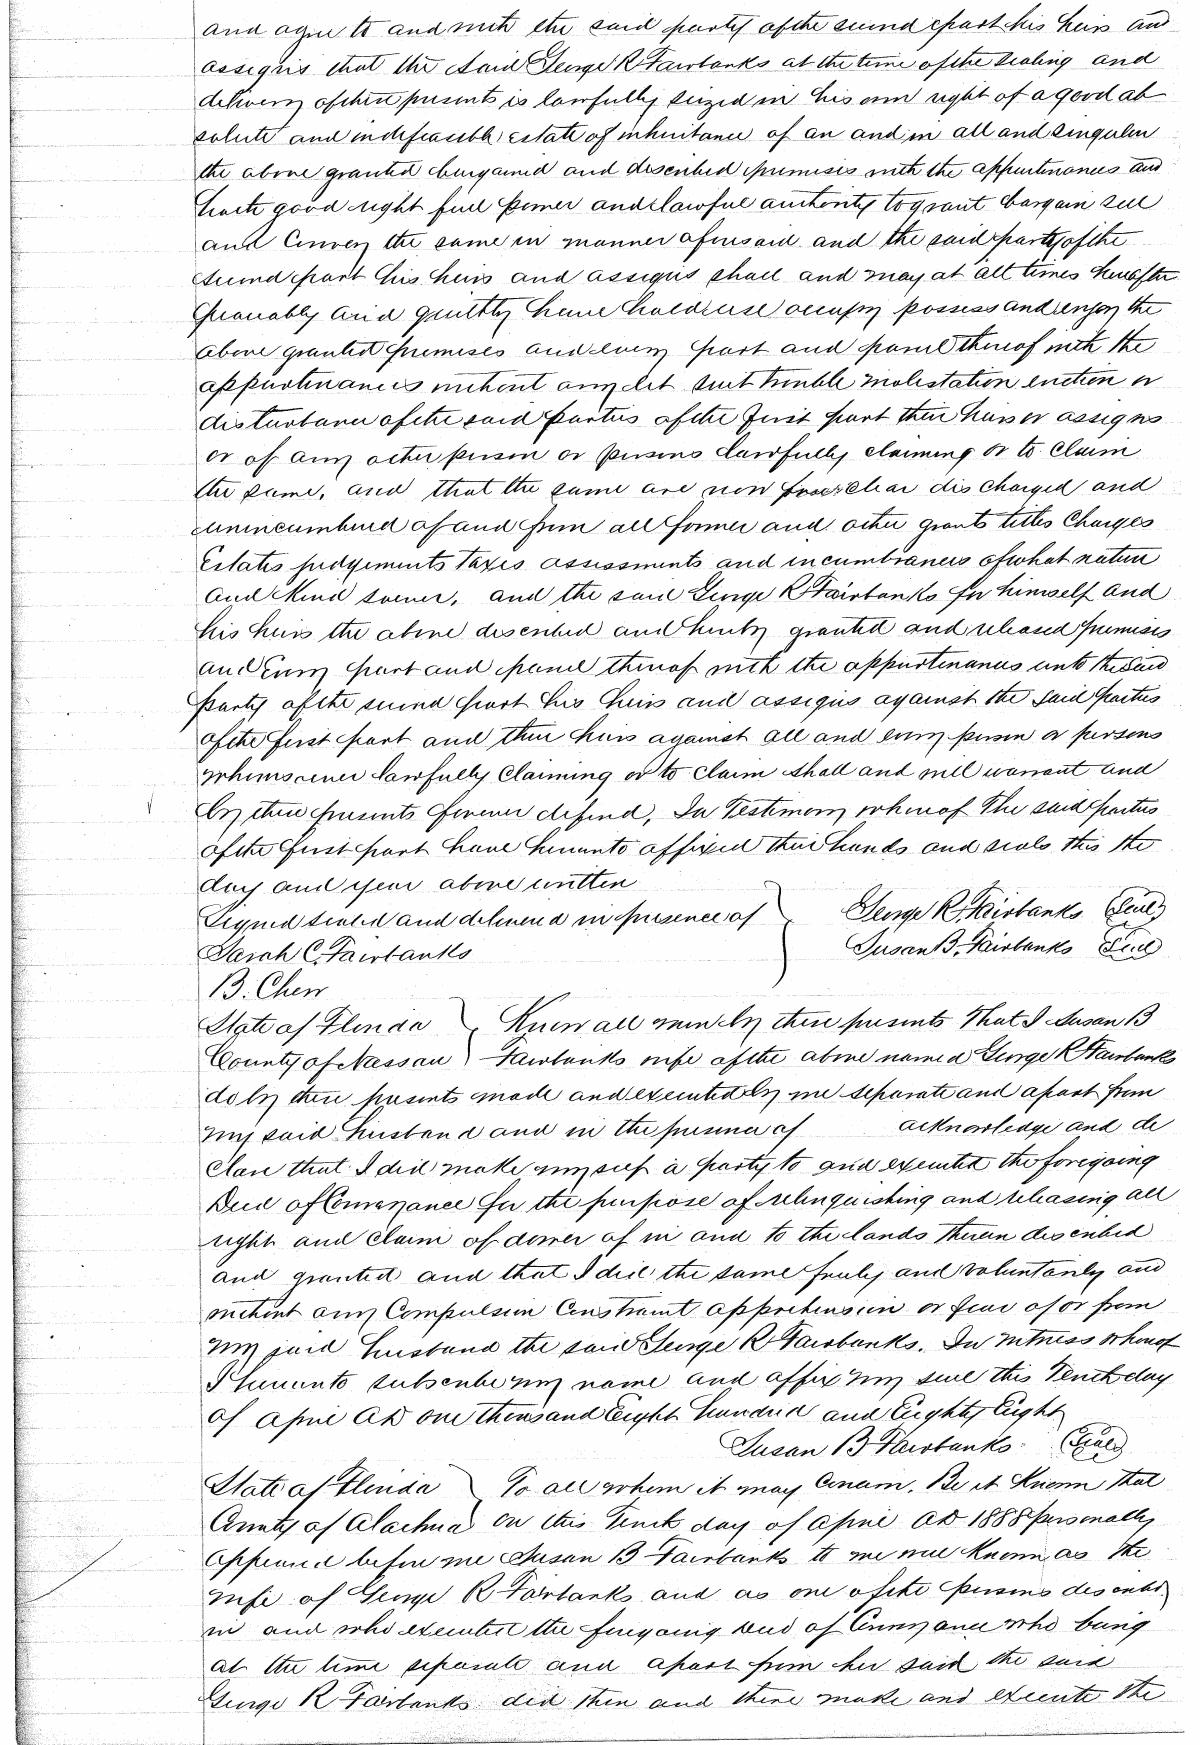 and agree to and with the said party of the second part his heirs and
assigns that the said George R Fairbanks at the time of the sealing and
delivery of these presents is lawfully seized in his own right of a good ab
solute and indefeasible estate of inheritance of an and in all and singular
the above granted bargained and described premises with the appurtenances and
hath good right full power and lawful authority to grant bargain sell
and Convey the same in manner aforesaid and the said party of the
second part his heirs and assigns shall and may at all times hereafter
Peaceably and quietly have hold use occupy possess and enjoy the
above granted premises and every part and parcel thereof with the
appurtenances without any let suit trouble molestation eviction or
disturbance of the said Parties of the first part their heirs or assigns
or of any other person or persons lawfully claiming or to Claim
the same, and that the same are now free clear discharged and
unincumbered of and from all former and other grants titles Charges
Estates judgements taxes assessments and incumbrances of what nature
and kind soever, and the said George R Fairbanks for himself and
his heirs the above described and hereby granted and released premises
and every part and parcel thereof with the appurtenances unto the said
Party of the second part his heirs and assigns against the said parties
of the first part and their heirs against all and every person or persons
whomsoever lawfully Claiming or to claim shall and will warrant and
by these presents forever defend, In Testimony whereof The said parties
of the first part have hereunto affixed their hands and seals this the
day and year above written
Signed sealed and delivered in presence of George R. Fairbanks (Seal)
Sarah C. Fairbanks Susan B. Fairbanks Seal
B. Chew
State of Florida Know all men by these presents That I Susan B
County of Nassau Fairbanks wife of the above named George R Fairbanks
do by these presents made and executed by me separate and apart from
my said husband and in the presence of acknowledge and de
clare that I did make myself a party to and executed the foregoing
Deed of Conveyance for the purpose of relinquishing and releasing all
right and claim of dower of in and to the lands therein described
and granted and that I did the same freely and voluntarily and
without any Compulsion Constraint apprehension or fear of or from
my said husband the said George R Fairbanks. In witness whereof
I hereunto subscribe my name and affix my seal this Tenth day
of April AD one thousand Eight hundred and Eighty Eight
Susan B Fairbanks (Seal)
State of Florida To all whom it may Concern. Be it Known That
County of Alachua On this Tenth day of April AD 1888 personally
appeared before me Susan B Fairbanks to me well known as the
wife of George R Fairbanks and as one of the persons described
in and who executed the foregoing Deed of Conveyance who being
at the time separate and apart from her said the said
George R Fairbanks did then and there make and execute the